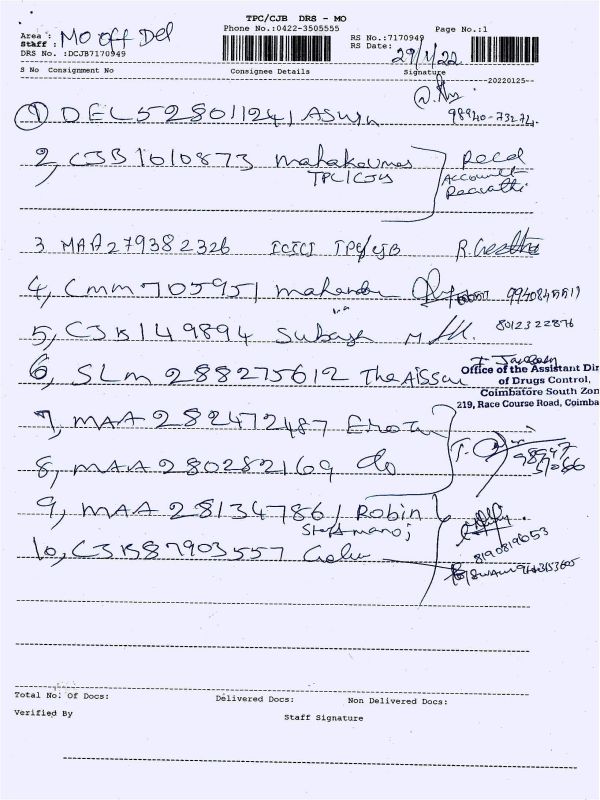 TPC/CJB DRS - MO
Phone No.:0422-3505555
Page No.:1
Area : MO off Del
RS No.:7170949
Staff :
RS Date: 29/1/22
DRS No. :DCJB7170949
S No Consignment No Consignee Details Signature
20220125
1 DEL528011241 Aswin
98940-73274
2, CJB1010873 mahakoumas Recd
TPC/CJB Account
3 MAA279382326 ICICI TPC/CJB R. Geetha
4, CMM705951 mahendra 9940845519
5, CJB149894 Subash 8012322876
6, SLM 288275612 The Aissau
Office of the Assistant Dir
of Drugs Control,
Coimbatore South Zon
219, Race Course Road, Coimba
7, MAA 282472487
8, MAA 280282169 do
9, MAA 281347861 Robin
Staff manoj
8190819053
10, CJB87903557
Total No: Of Docs: Delivered Docs: Non Delivered Docs:
Verified By Staff Signature